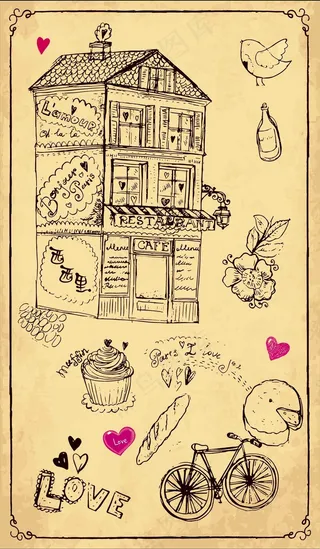 L'amour!
oh la la
Bonjour
Paris
RESTAURANT
CAFE
Menu
Menu
西西里
muffin
Paris I love you
Love
LOVE